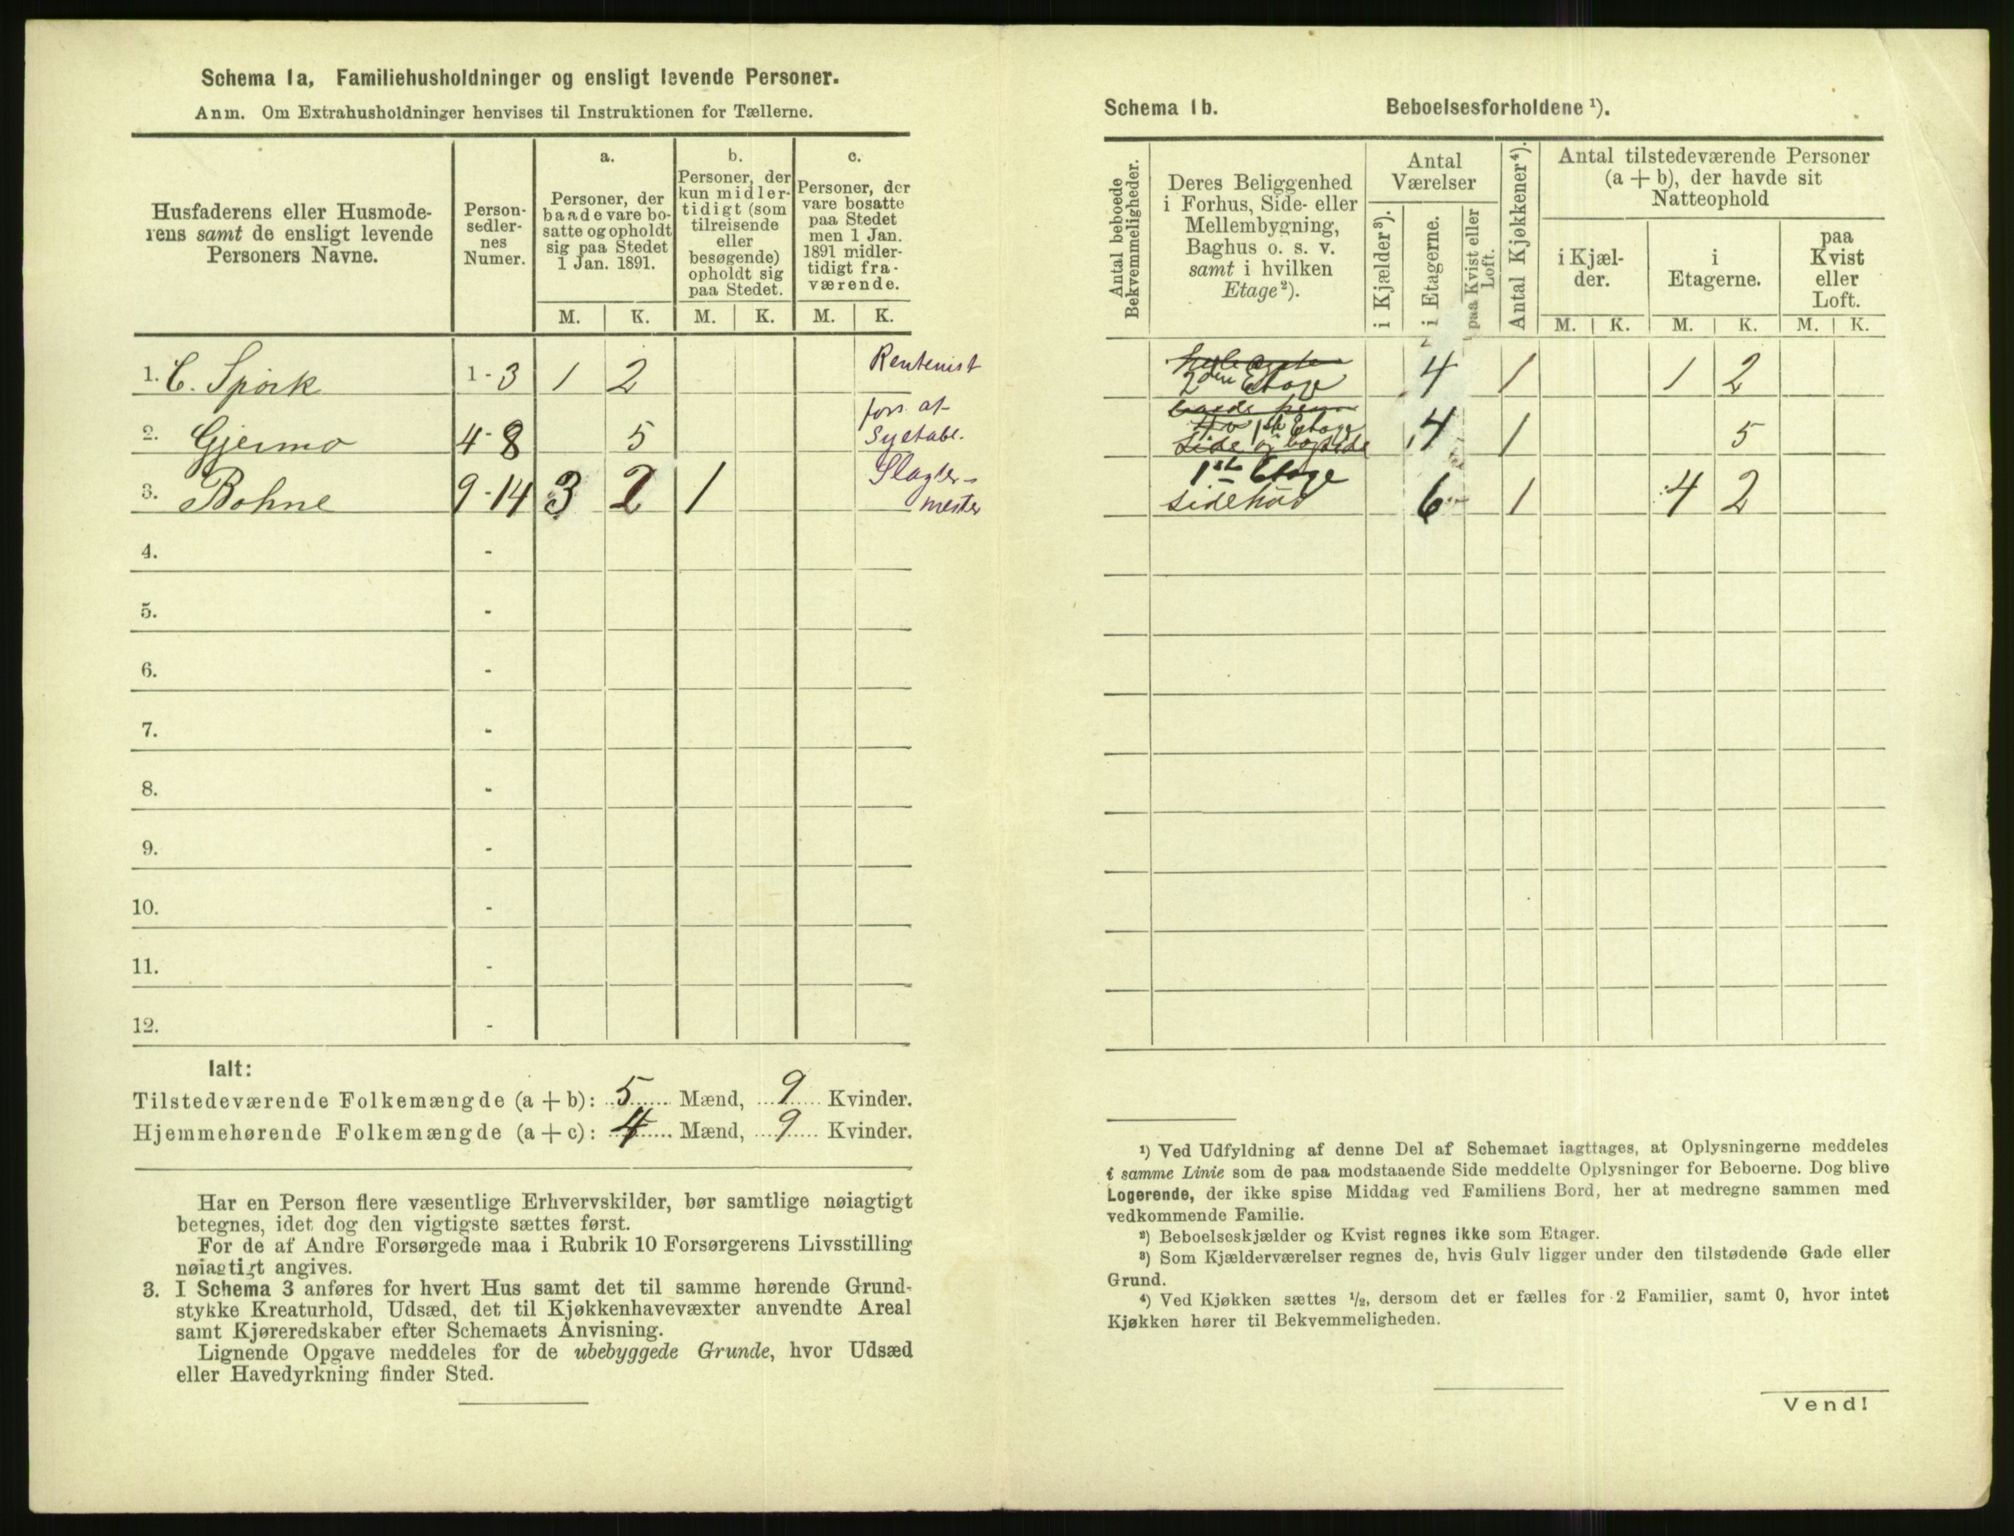 Schema 1a, Familiehusholdninger og ensligt levende Personer.
Anm. Om Extrahusholdninger henvises til Instruktionen for Tællerne.
Husfaderens eller Husmode-
rens samt de ensligt levende
Personers Navne.
Person-
sedler-
nes
Numer.
a.
Personer, der
baade vare bo-
satte og opholdt
sig paa Stedet
1 Jan. 1891.
b.
Personer, der
kun midler-
tidigt (som
tilreisende
eller
besøgende)
opholdt sig
paa Stedet.
c.
Personer, der
vare bosatte
paa Stedet
men 1 Jan.
1891 midler-
tidigt fra-
værende.
M. K. M. K. M. K.
1. C. Spörk 1-3 1 2 Rentenist
2. Gjermo 4-8 5 fors. af Syetabl.
3. Bohne 9-14 3 2 1 Slagter-
mester
4. -
5. -
6. -
7. -
8. -
9. -
10. -
11. -
12. -
Ialt:
Tilstedeværende Folkemængde (a + b): 5 Mænd, 9 Kvinder.
Hjemmehørende Folkemængde (a + c): 4 Mænd, 9 Kvinder.
Har en Person flere væsentlige Erhvervskilder, bør samtlige nøiagtigt
betegnes, idet dog den vigtigste sættes først.
For de af Andre Forsørgede maa i Rubrik 10 Forsørgerens Livsstilling
nøiagtigt angives.
3. I Schema 3 anføres for hvert Hus samt det til samme hørende Grund-
stykke Kreaturhold, Udsæd, det til Kjøkkenhavevæxter anvendte Areal
samt Kjøreredskaber efter Schemaets Anvisning.
Lignende Opgave meddeles for de ubebyggede Grunde, hvor Udsæd
eller Havedyrkning finder Sted.
Schema 1b. Beboelsesforholdene ¹).
Antal beboede
Bekvemmeligheder.
Deres Beliggenhed
i Forhus, Side- eller
Mellembygning,
Baghus o. s. v.
samt i hvilken
Etage²).
Antal
Værelser
i Kjælder³).
i Etagerne.
paa Kvist eller
Loft.
Antal Kjøkkener⁴).
Antal tilstedeværende Personer
(a + b), der havde sit
Natteophold
i Kjæl-
der.
i
Etagerne.
paa
Kvist
eller
Loft.
M. K. M. K. M. K.
2den Etage 4 1 1 2
1ste Etage
4 1 5
1ste Etage
sidehus 6 1 4 2
¹) Ved Udfyldning af denne Del af Schemaet iagttages, at Oplysningerne meddeles
i samme Linie som de paa modstaaende Side meddelte Oplysninger for Beboerne. Dog blive
Logerende, der ikke spise Middag ved Familiens Bord, her at medregne sammen med
vedkommende Familie.
²) Beboelseskjælder og Kvist regnes ikke som Etager.
³) Som Kjælderværelser regnes de, hvis Gulv ligger under den tilstødende Gade eller
Grund.
⁴) Ved Kjøkken sættes ½, dersom det er fælles for 2 Familier, samt 0, hvor intet
Kjøkken hører til Bekvemmeligheden.
Vend!